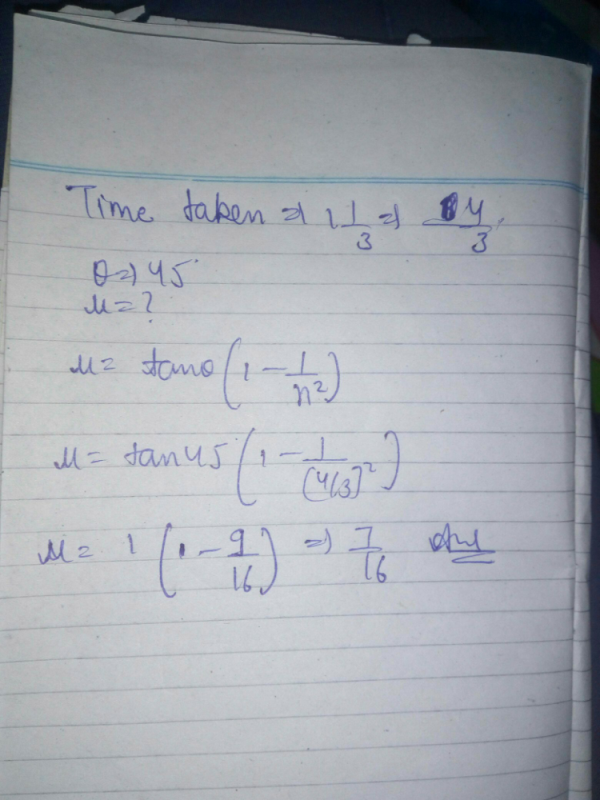 Time taken ⇒ 1 1/3 ⇒ 4/3
θ ⇒ 45°
μ = ?
μ = tanθ (1 - 1/n²)
μ = tan45 (1 - 1/(4/3)²)
μ = 1 (1 - 9/16) ⇒ 7/16 Ans